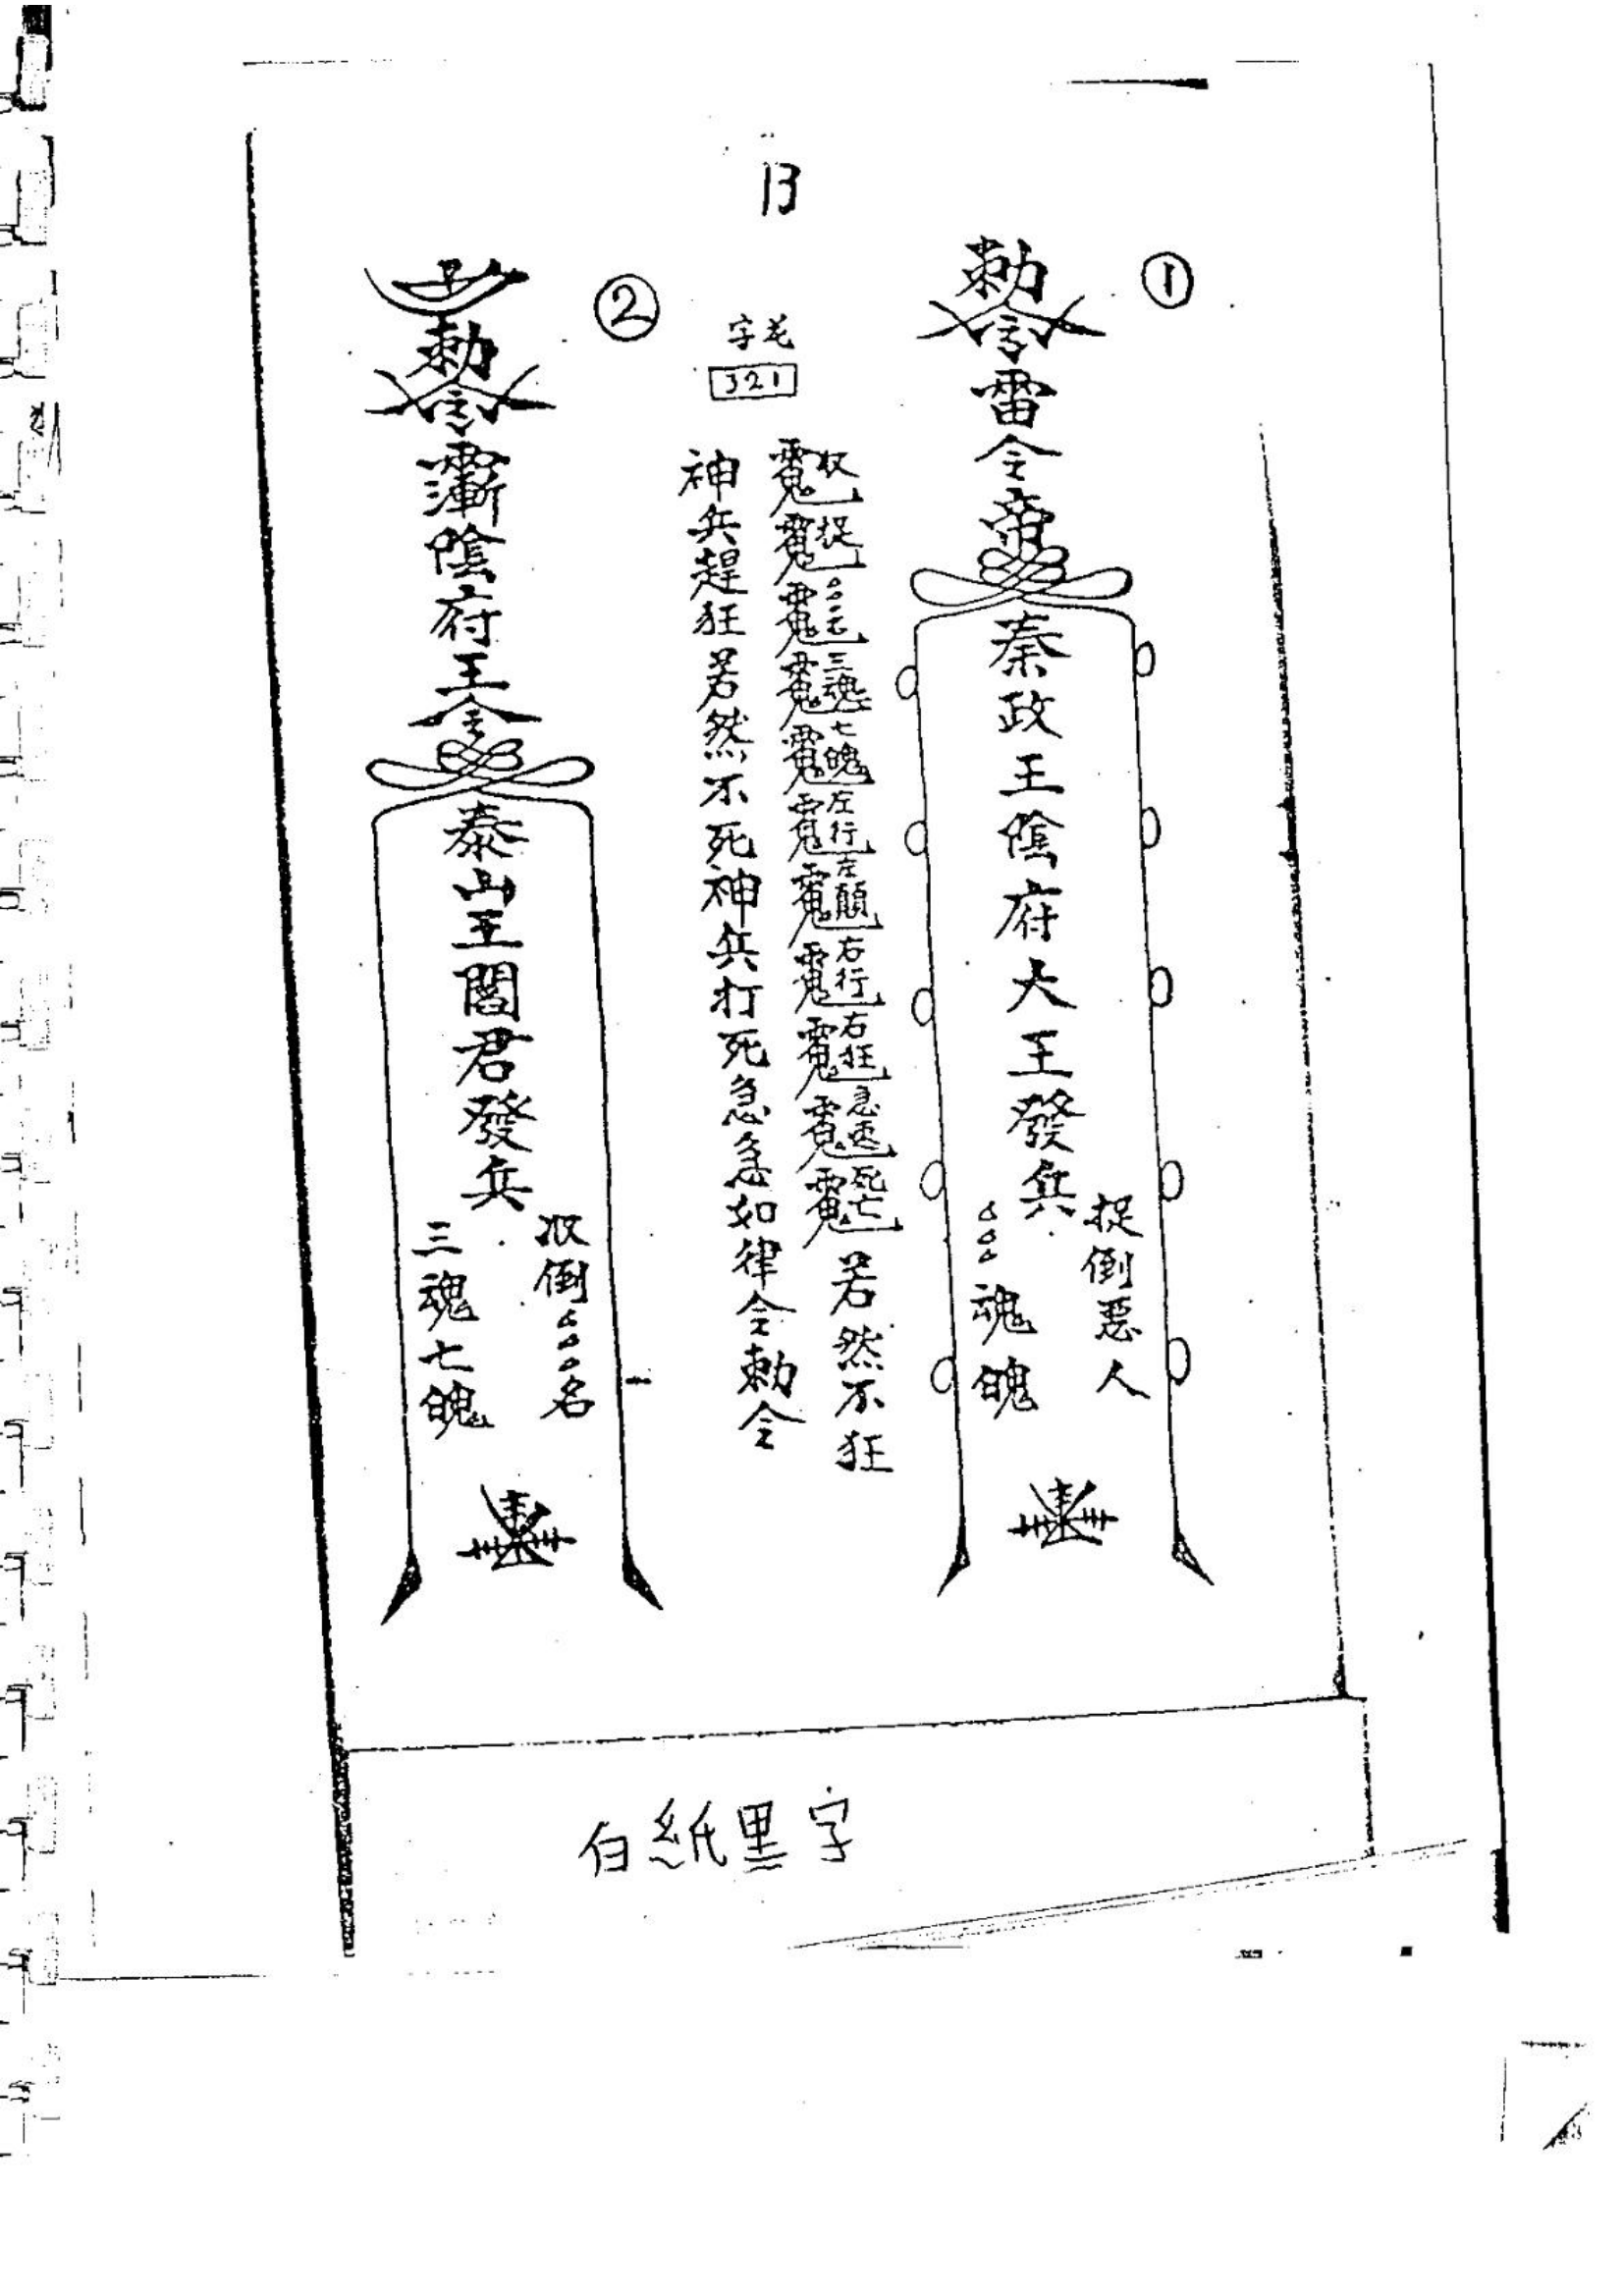 13
①
勅令雷令帝
秦政王陰府大王發兵
捉倒惡人
魂魄
字花
321
收捉
三魂七魄左行左顛右行右狂急速死亡若然不狂
神兵趕狂若然不死神兵打死急急如律令勅令
②
勅令
陰府王令
泰山王閻君發兵
收倒名
三魂七魄
白紙黑字